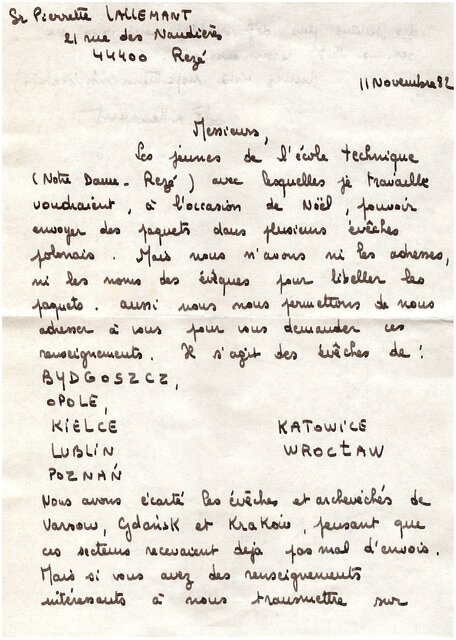 Sr Pierrette LALLEMANT
21 rue des Naudières
44400 Rezé
11 Novembre 82
Messieurs,
Les jeunes de l'école technique
(Notre Dame - Rezé) avec lesquelles je travaille
voudraient, à l'occasion de Noël, pouvoir
envoyer des paquets dans plusieurs évêchés
polonais. Mais nous n'avons ni les adresses,
ni les noms des évêques pour libeller les
paquets. aussi nous nous permettons de nous
adresser à vous pour vous demander ces
renseignements. Il s'agit des évêchés de :
BYDGOSZCZ,
OPOLE,
KIELCE KATOWICE
LUBLIN WROCŁAW
POZNAŃ
Nous avons écarté les évêchés et archevêchés de
Varsow, Gdańsk et Kraków, pensant que
ces secteurs recevaient déjà pas mal d'envois.
Mais si vous avez des renseignements
intéressants à nous transmettre sur